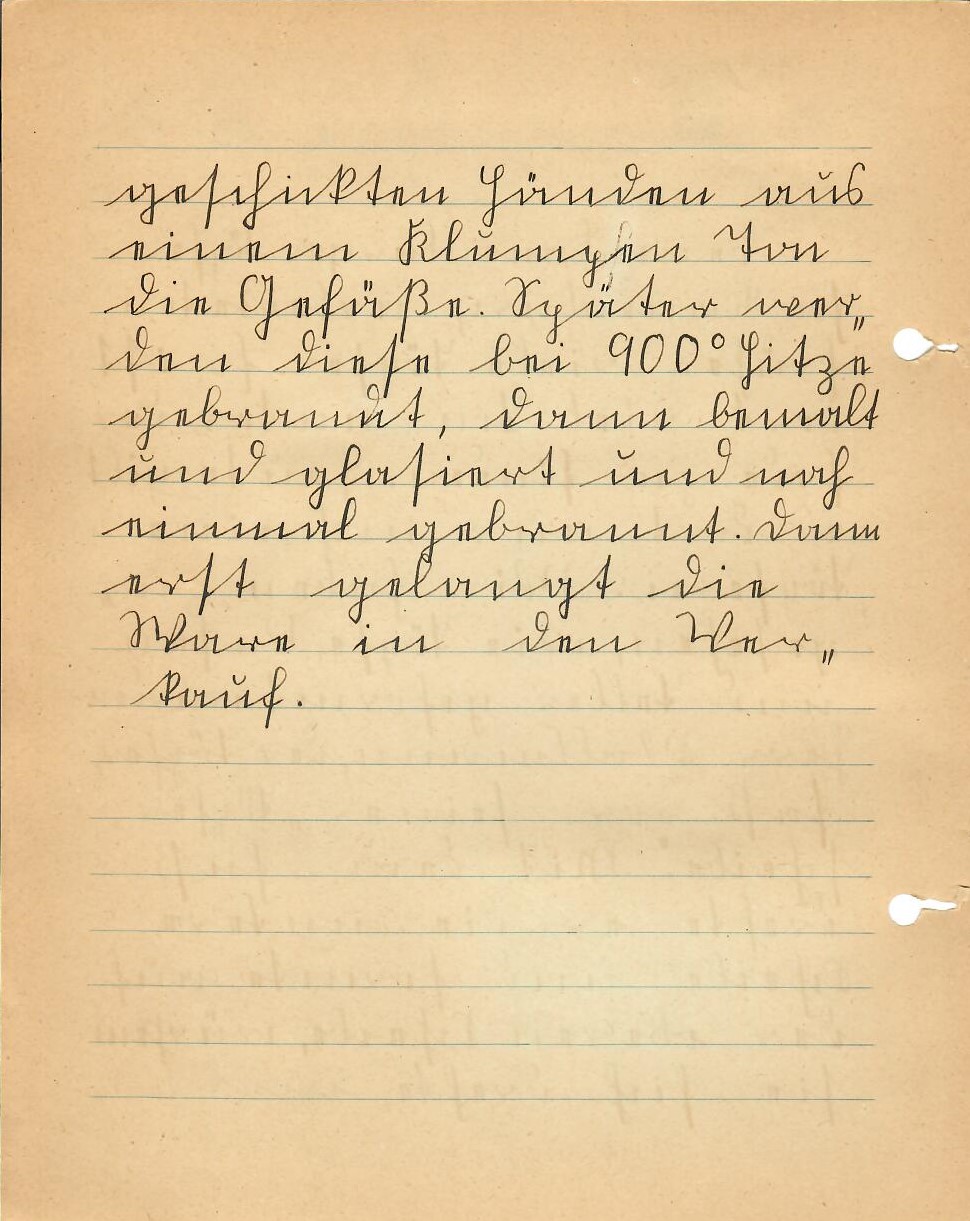 geschickten Händen aus
einem Klumpen Ton
die Gefäße. Später wer„
den diese bei 900° Hitze
gebrannt, dann bemalt
und glasiert und noch
einmal gebrannt. Dann
erst gelangt die
Ware in den Ver„
kauf.